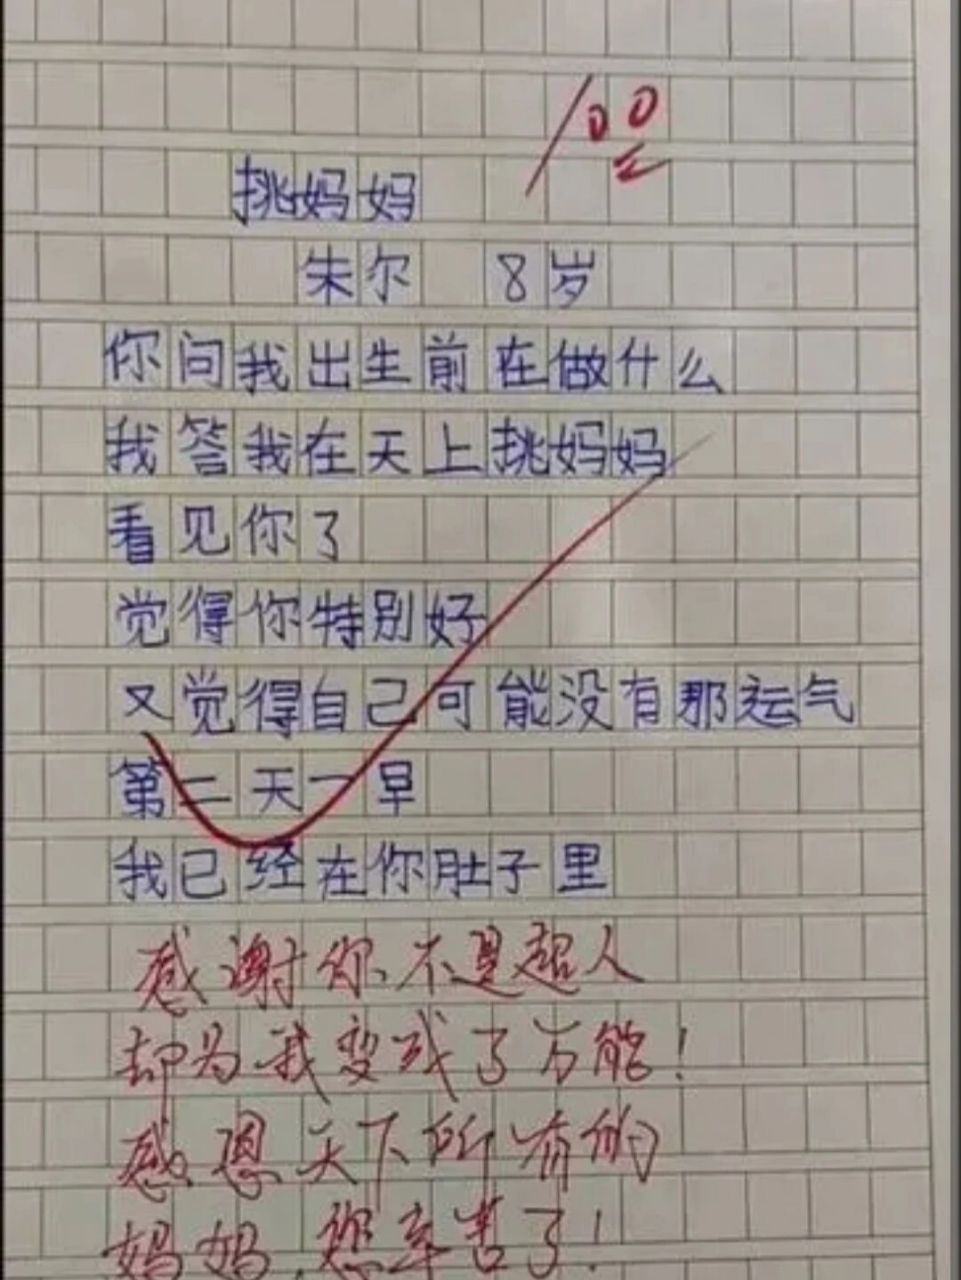 100
挑妈妈
朱尔 8岁
你问我出生前在做什么
我答我在天上挑妈妈
看见你了
觉得你特别好
又觉得自己可能没有那运气
第二天一早
我已经在你肚子里
感谢你不是超人
却为我变成了万能!
感恩天下所有的
妈妈,您辛苦了!